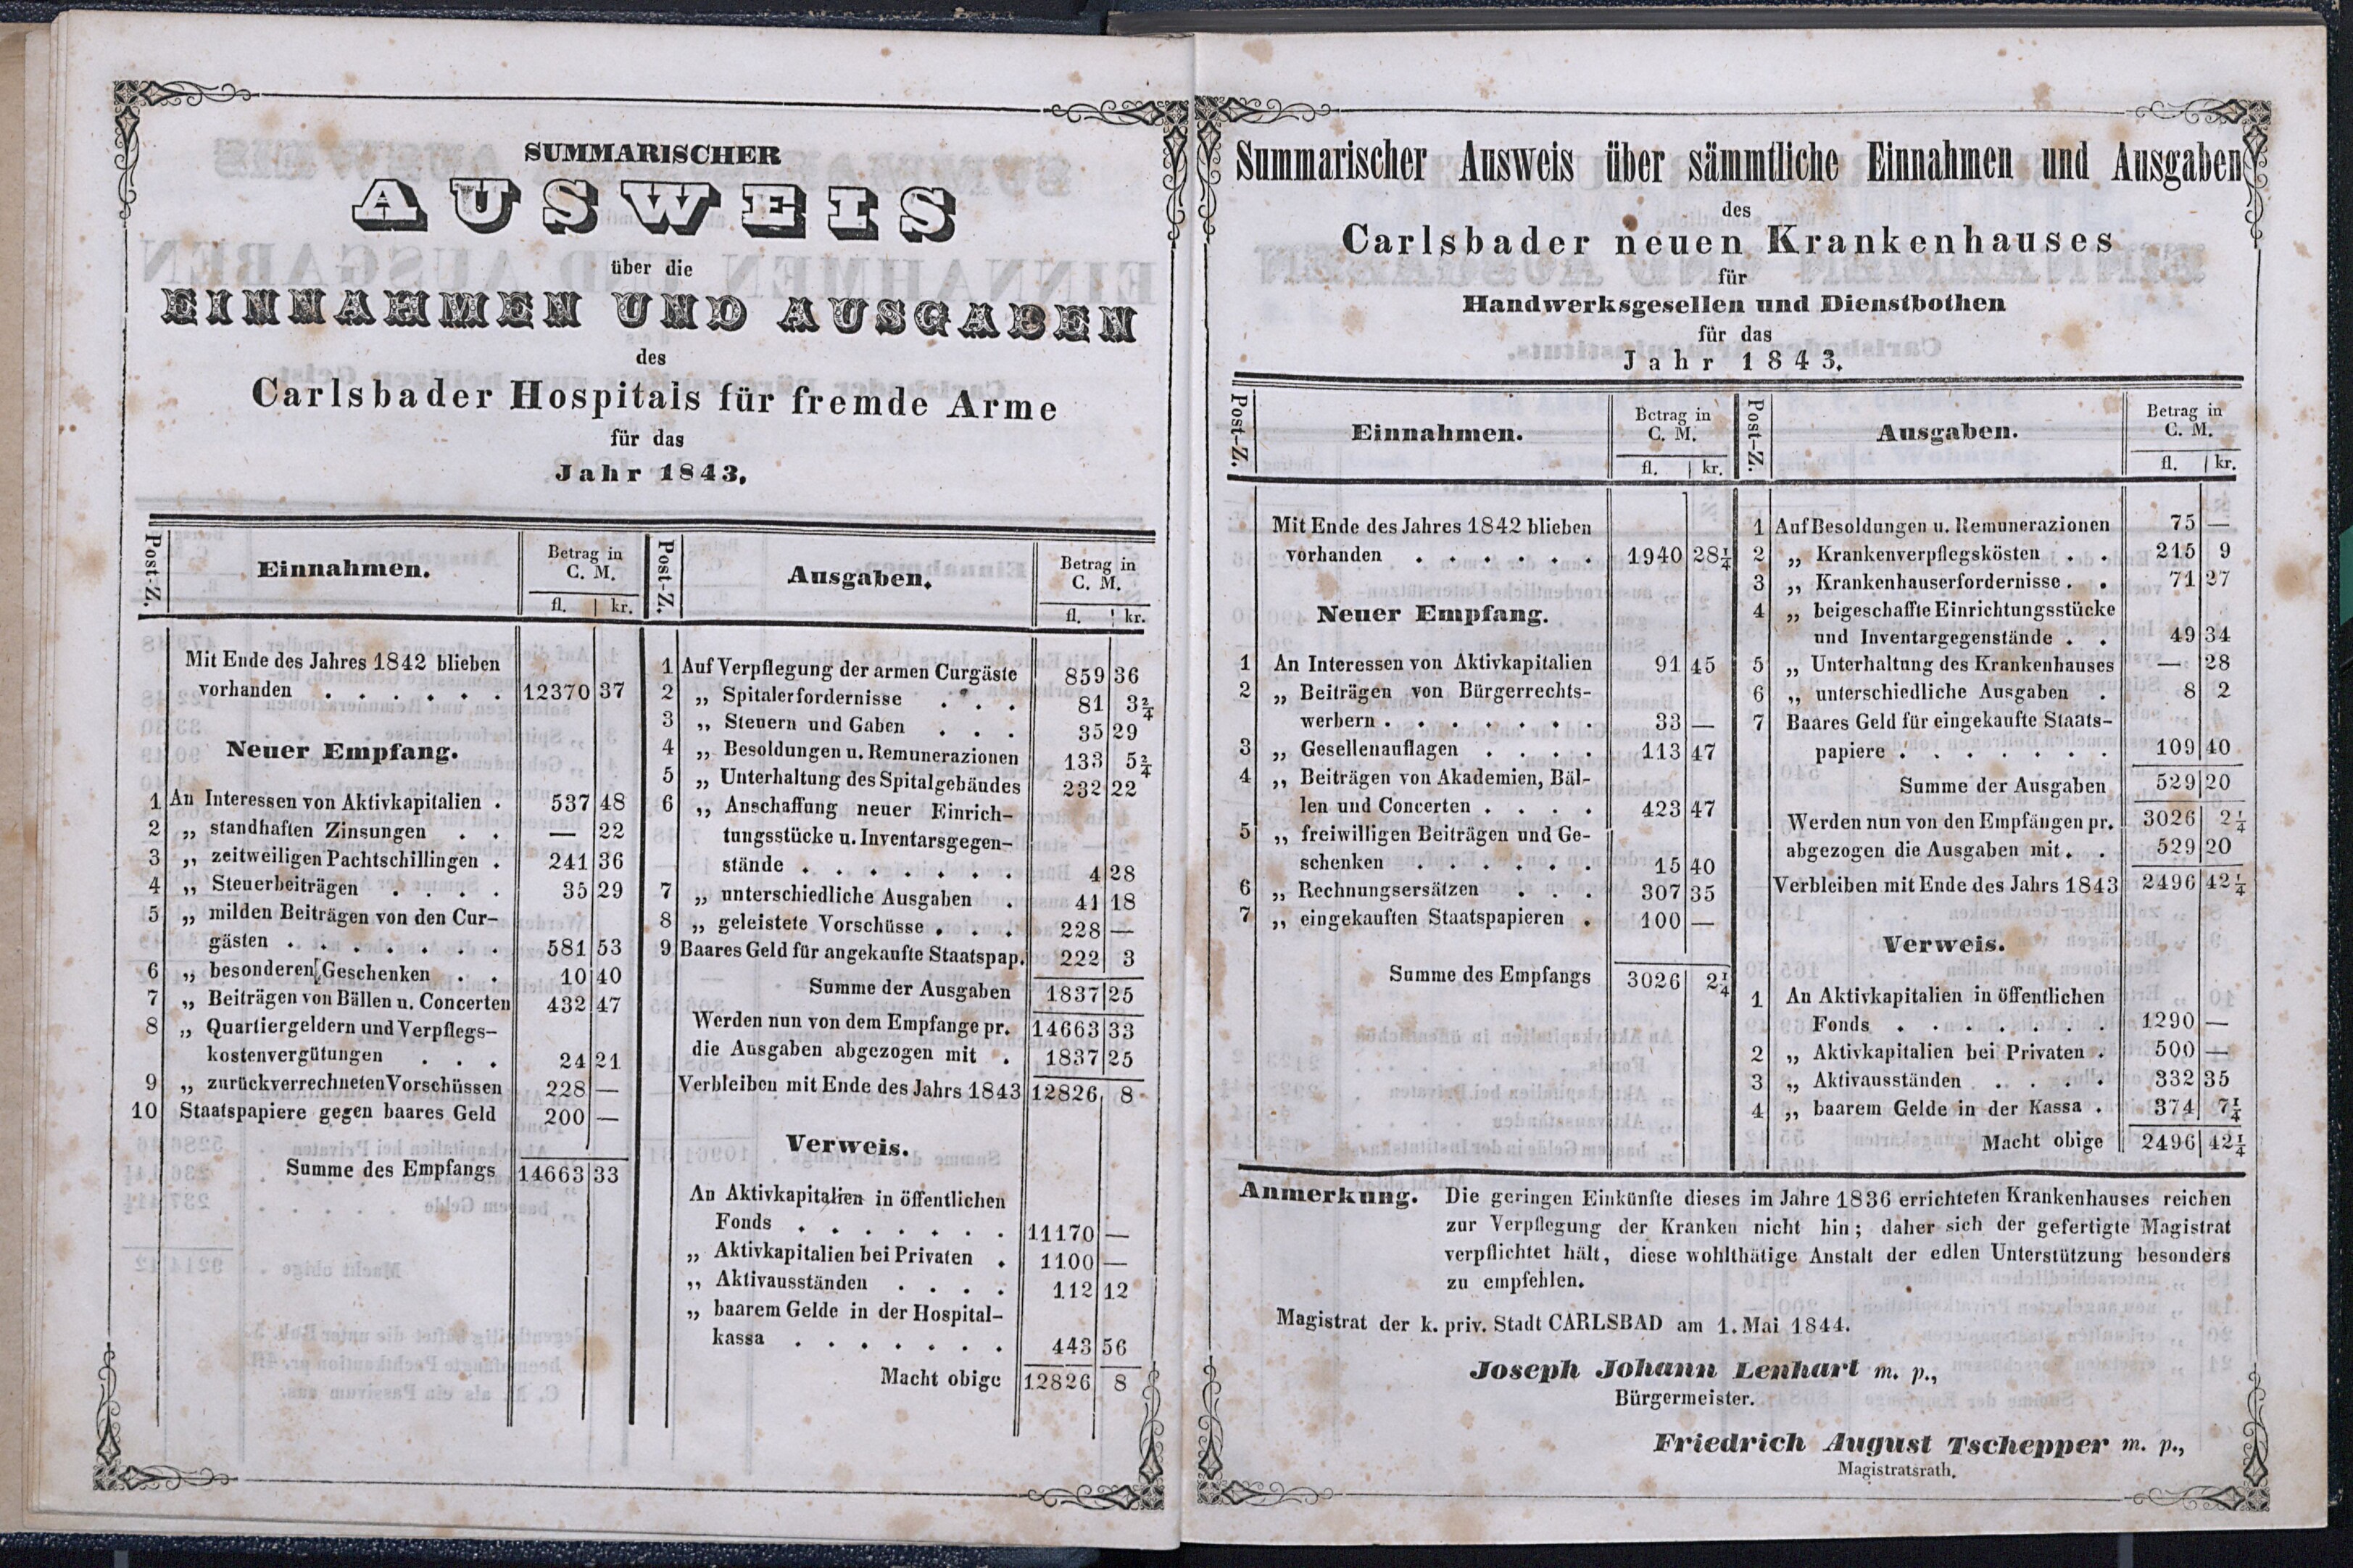 SUMMARISCHER
AUSWEIS
über die
EINNAHMEN UND AUSGABEN
des
Carlsbader Hospitals für fremde Arme
für das
Jahr 1843.
Post-Z. Einnahmen. Betrag in C. M. fl. kr.
Mit Ende des Jahres 1842 blieben
vorhanden . . . . . . 12370 37
Neuer Empfang.
1 An Interessen von Aktivkapitalien . 537 48
2 „ standhaften Zinsungen . . — 22
3 „ zeitweiligen Pachtschillingen . 241 36
4 „ Steuerbeiträgen . . . . 35 29
5 „ milden Beiträgen von den Cur-
gästen . . . . . . . 581 53
6 „ besonderen Geschenken . . 10 40
7 „ Beiträgen von Bällen u. Concerten 432 47
8 „ Quartiergeldern und Verpflegs-
kostenvergütungen . . . 24 21
9 „ zurückverrechneten Vorschüssen 228 —
10 Staatspapiere gegen baares Geld 200 —
Summe des Empfangs 14663 33
Post-Z. Ausgaben. Betrag in C. M. fl. kr.
1 Auf Verpflegung der armen Curgäste 859 36
2 „ Spitalerfordernisse . . . 81 3 2/4
3 „ Steuern und Gaben . . . 35 29
4 „ Besoldungen u. Remunerazionen 133 5 2/4
5 „ Unterhaltung des Spitalgebäudes 232 22
6 „ Anschaffung neuer Einrich-
tungsstücke u. Inventarsgegen-
stände . . . . . . . 4 28
7 „ unterschiedliche Ausgaben . 41 18
8 „ geleistete Vorschüsse . . . 228 —
9 Baares Geld für angekaufte Staatspap. 222 3
Summe der Ausgaben 1837 25
Werden nun von dem Empfange pr. 14663 33
die Ausgaben abgezogen mit . 1837 25
Verbleiben mit Ende des Jahrs 1843 12826 8
Verweis.
An Aktivkapitalien in öffentlichen
Fonds . . . . . . . 11170 —
„ Aktivkapitalien bei Privaten . 1100 —
„ Aktivausständen . . . . 112 12
„ baarem Gelde in der Hospital-
kassa . . . . . . . 443 56
Macht obige 12826 8
Summarischer Ausweis über sämmtliche Einnahmen und Ausgaben
des
Carlsbader neuen Krankenhauses
für
Handwerksgesellen und Dienstbothen
für das
Jahr 1843.
Post-Z. Einnahmen. Betrag in C. M. fl. kr.
Mit Ende des Jahres 1842 blieben
vorhanden . . . . . . 1940 28 1/4
Neuer Empfang.
1 An Interessen von Aktivkapitalien 91 45
2 „ Beiträgen von Bürgerrechts-
werbern . . . . . . . 33 —
3 „ Gesellenauflagen . . . . 113 47
4 „ Beiträgen von Akademien, Bäl-
len und Concerten . . . . 423 47
5 „ freiwilligen Beiträgen und Ge-
schenken . . . . . . 15 40
6 „ Rechnungsersätzen . . . 307 35
7 „ eingekauften Staatspapieren . 100 —
Summe des Empfangs 3026 2 1/4
Post-Z. Ausgaben. Betrag in C. M. fl. kr.
1 Auf Besoldungen u. Remunerazionen 75 —
2 „ Krankenverpflegskösten . . 215 9
3 „ Krankenhauserfordernisse . . 71 27
4 „ beigeschaffte Einrichtungsstücke
und Inventargegenstände . . 49 34
5 „ Unterhaltung des Krankenhauses — 28
6 „ unterschiedliche Ausgaben . 8 2
7 Baares Geld für eingekaufte Staats-
papiere . . . . . . 109 40
Summe der Ausgaben 529 20
Werden nun von den Empfängen pr. 3026 2 1/4
abgezogen die Ausgaben mit . . 529 20
Verbleiben mit Ende des Jahrs 1843 2496 42 1/4
Verweis.
1 An Aktivkapitalien in öffentlichen
Fonds . . . . . . . 1290 —
2 „ Aktivkapitalien bei Privaten . 500 —
3 „ Aktivausständen . . . . 332 35
4 „ baarem Gelde in der Kassa . 374 7 1/4
Macht obige 2496 42 1/4
Anmerkung. Die geringen Einkünfte dieses im Jahre 1836 errichteten Krankenhauses reichen
zur Verpflegung der Kranken nicht hin; daher sich der gefertigte Magistrat
verpflichtet hält, diese wohlthätige Anstalt der edlen Unterstützung besonders
zu empfehlen.
Magistrat der k. priv. Stadt CARLSBAD am 1. Mai 1844.
Joseph Johann Lenhart m. p.,
Bürgermeister.
Friedrich August Tschepper m. p.,
Magistratsrath.